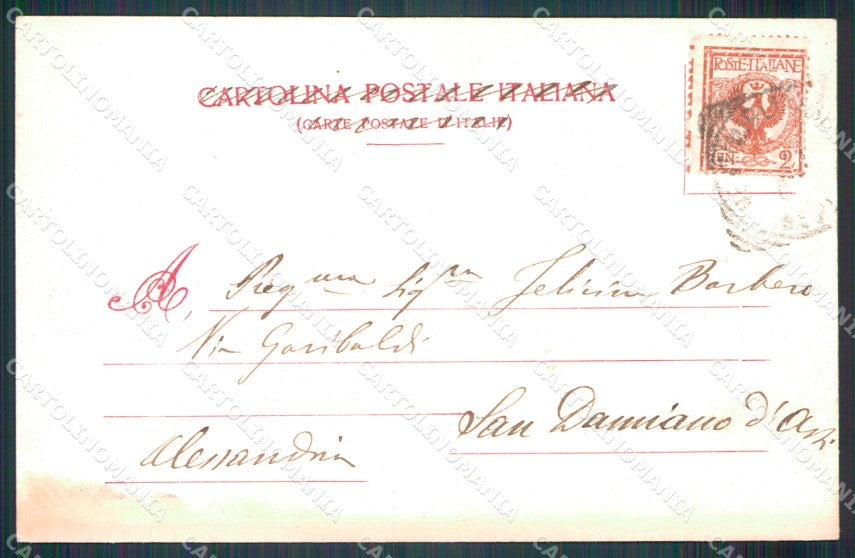 CARTOLINA POSTALE ITALIANA
(CARTE POSTALE D'ITALIE)
POSTE·ITALIANE
CEN. 2
A
Preg.ma Sig.ra Felicina Barbero
Via Garibaldi
San Damiano d'Asti
Alessandria
CARTOLINOMANIA